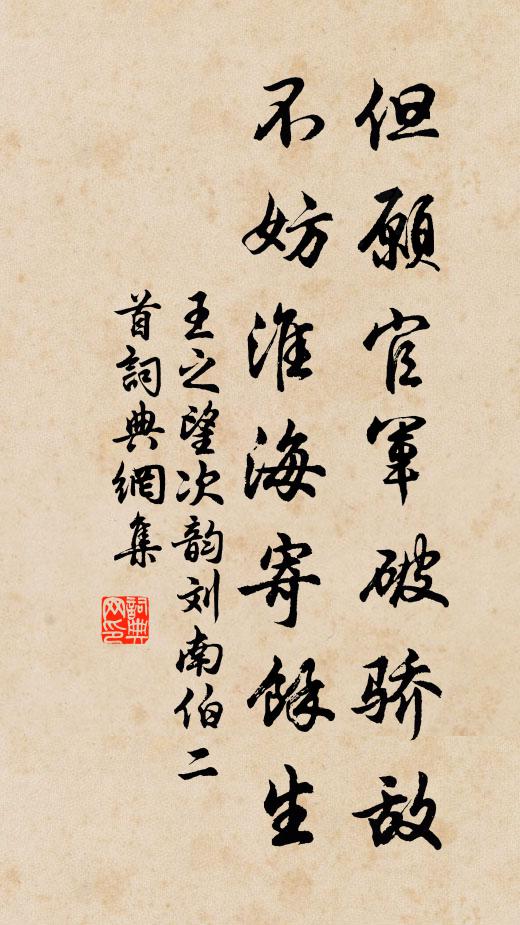 但願官軍破骄敌
不妨淮海寄餘生
王之望次韵刘南伯二
首詞典網集
詞典网印